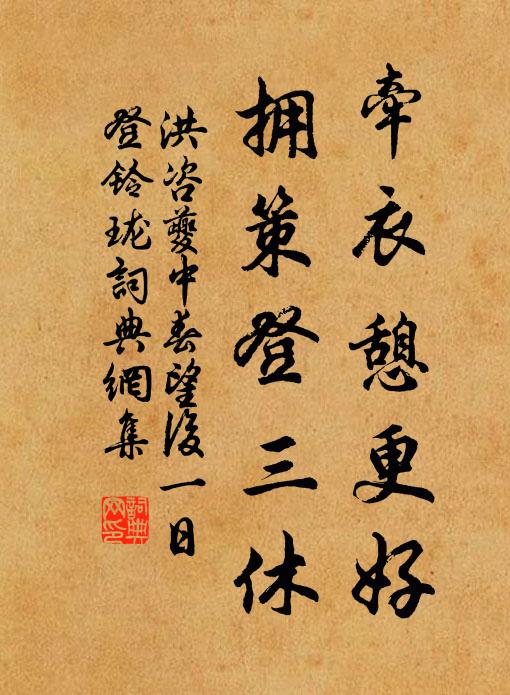 牽衣憩更好
拥策登三休
洪咨夔中春望後一日
登鈴瓏詞典網集
詞典
网印